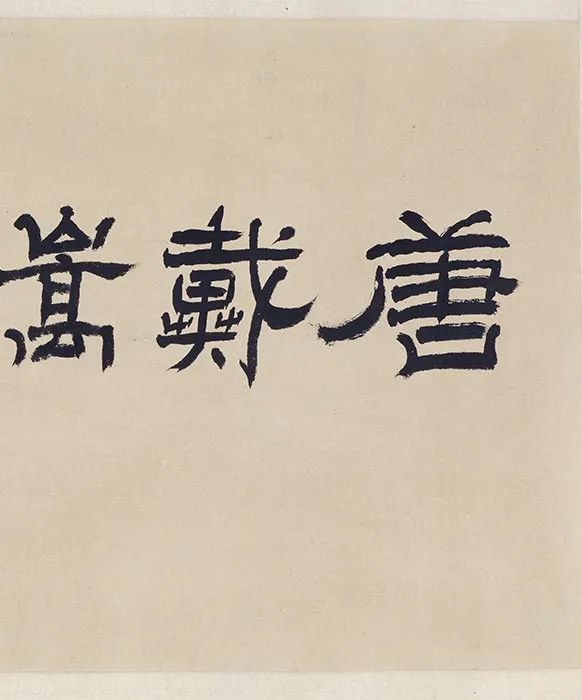 唐戴嵩